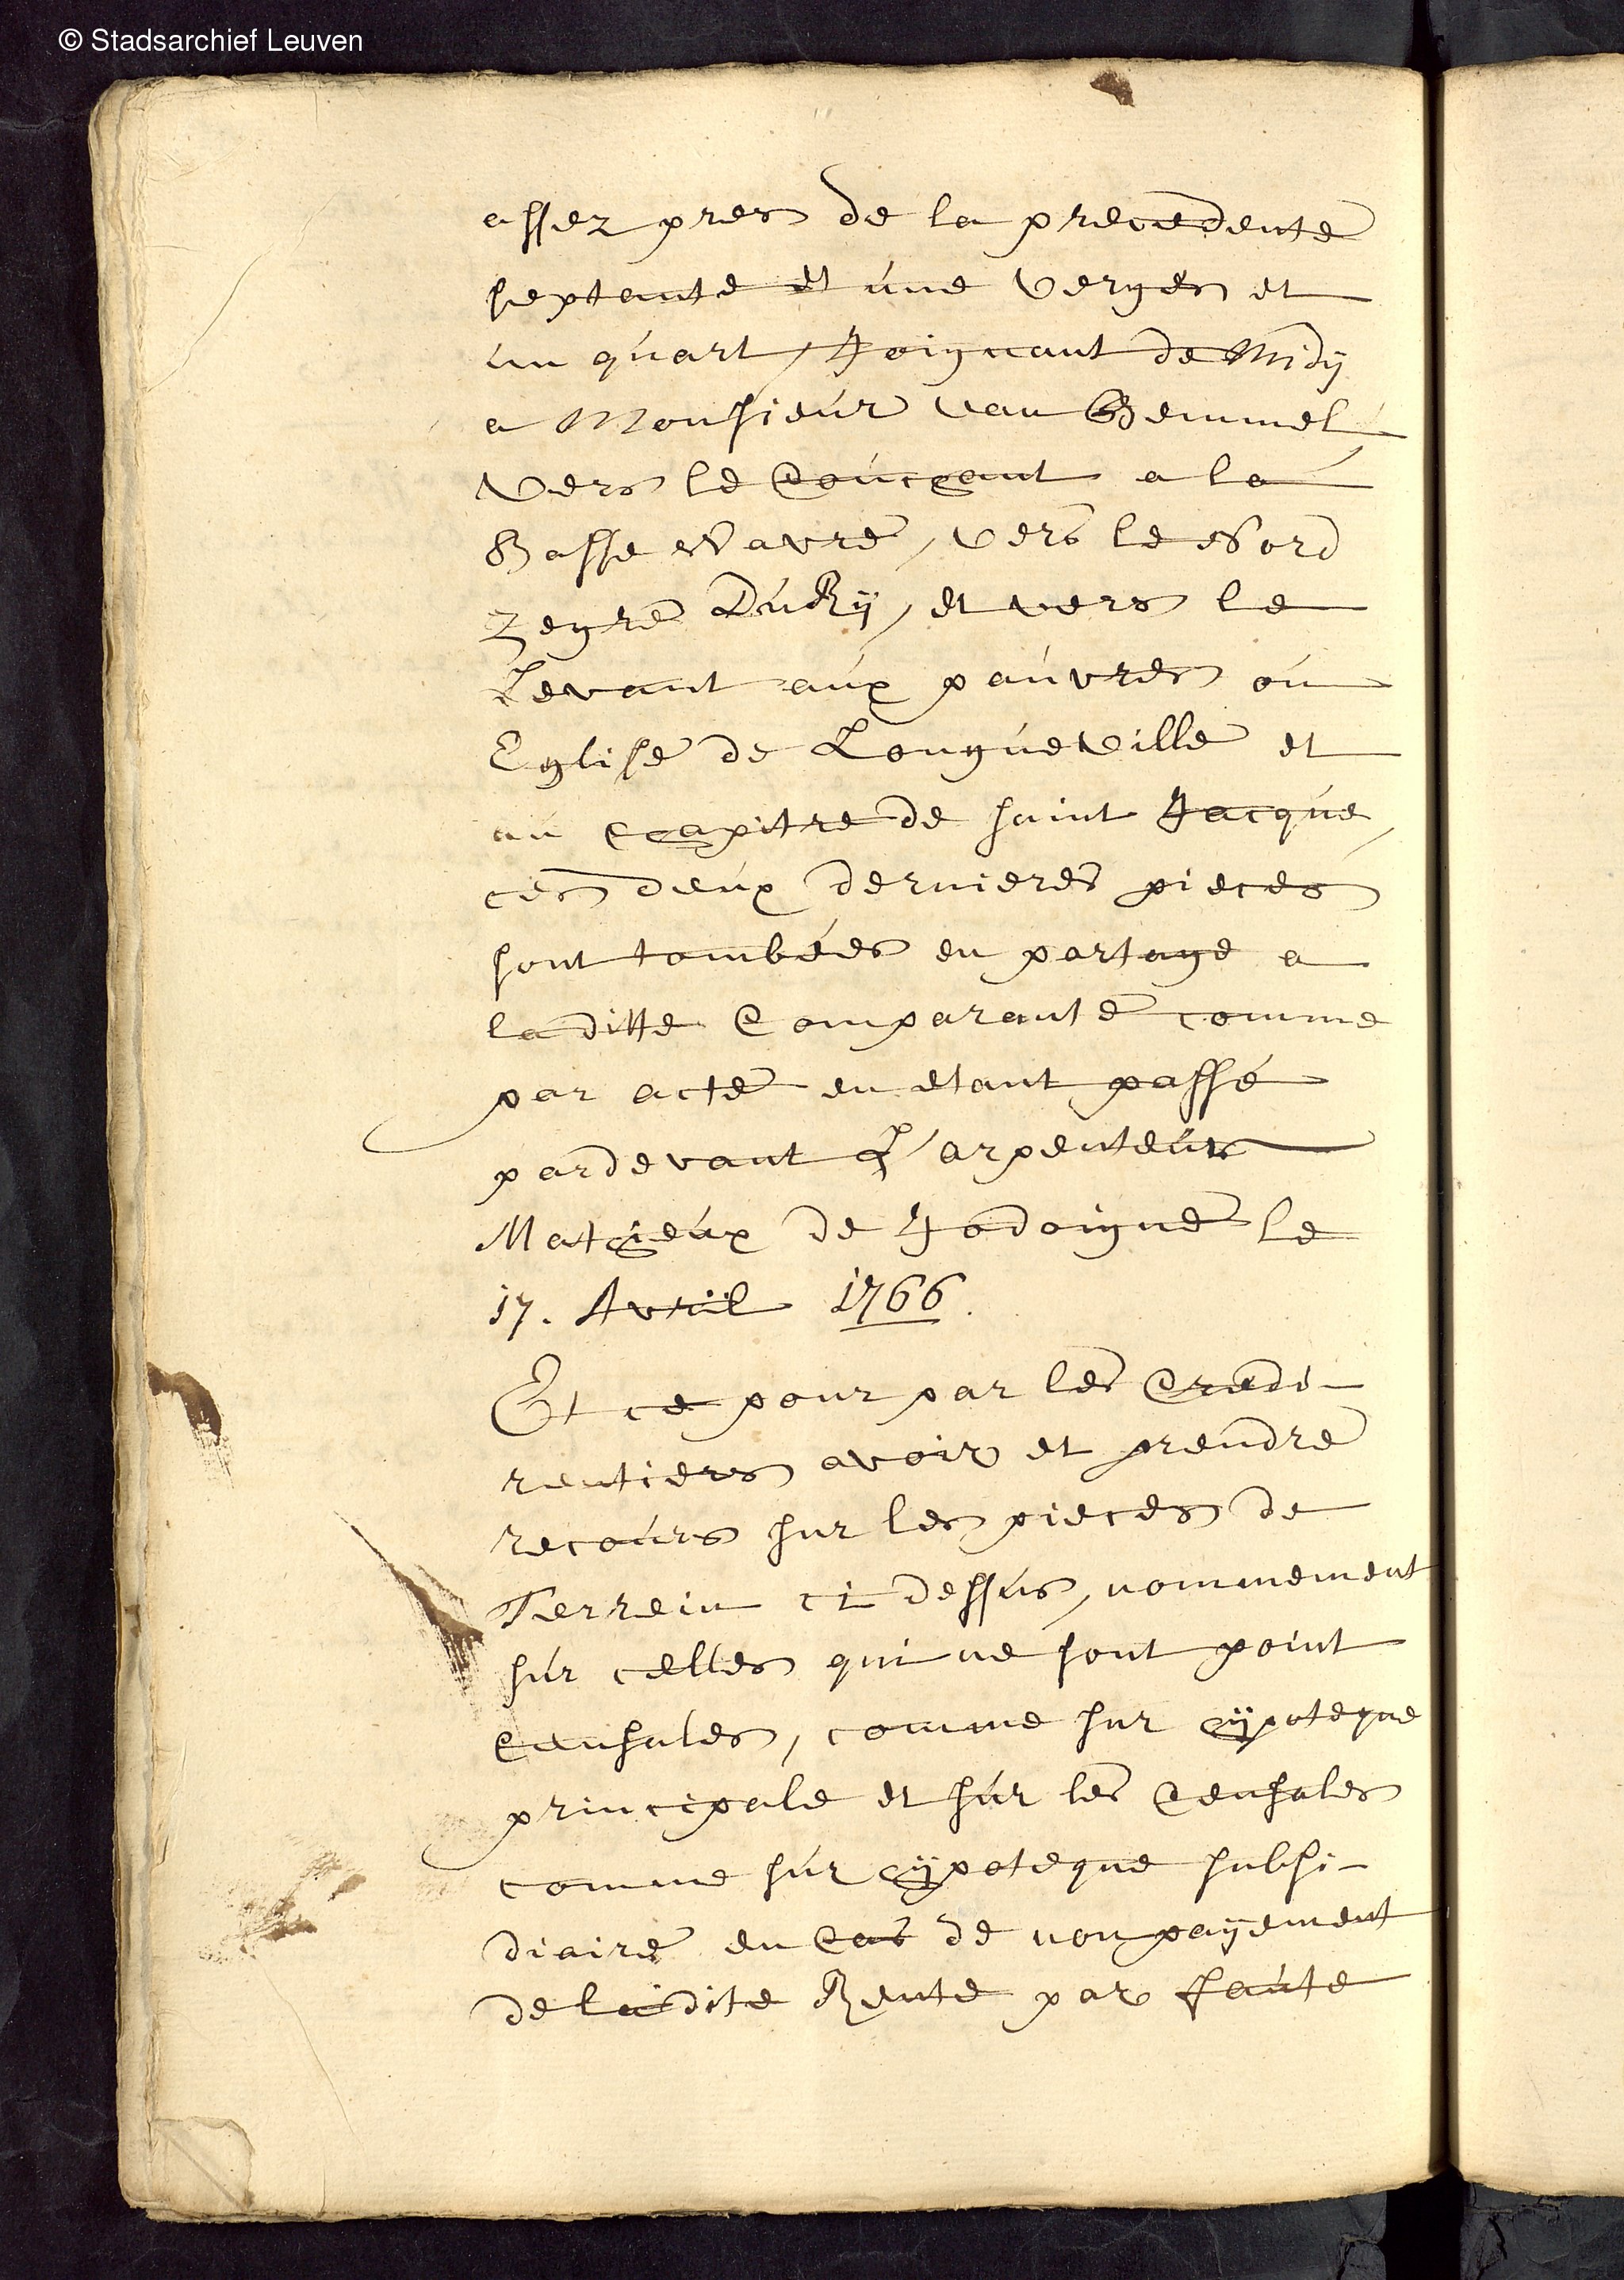 © Stadsarchief Leuven
assez pres de la precedente
septante et une verges et
un quart, Joignant de Midÿ
a Monsieur van Bemmel
vers le Couchant a la
Basse Wavre, vers le Nord
Zegre DuRÿ, et vers le
Levant aux pauvres ou
Eglise de Longueville et
au chapitre de saint Jacque,
ces deux dernieres pieces
sont tombées en partage a
la ditte Comparante comme
par acte en etant passé
pardevant L'arpenteur
Mathieux de Jodoigne le
17. Avril 1766.
Et ce pour par les Credi-
rentiers avoir et prendre
recours sur les pieces de
Terrein ci dessus, nommement
sur celles qui ne sont point
Censales, comme sur hÿpoteque
principale et sur les Censales
comme sur hÿpoteque subsi-
diaire en Cas de non paÿement
de la dite Rente par faute